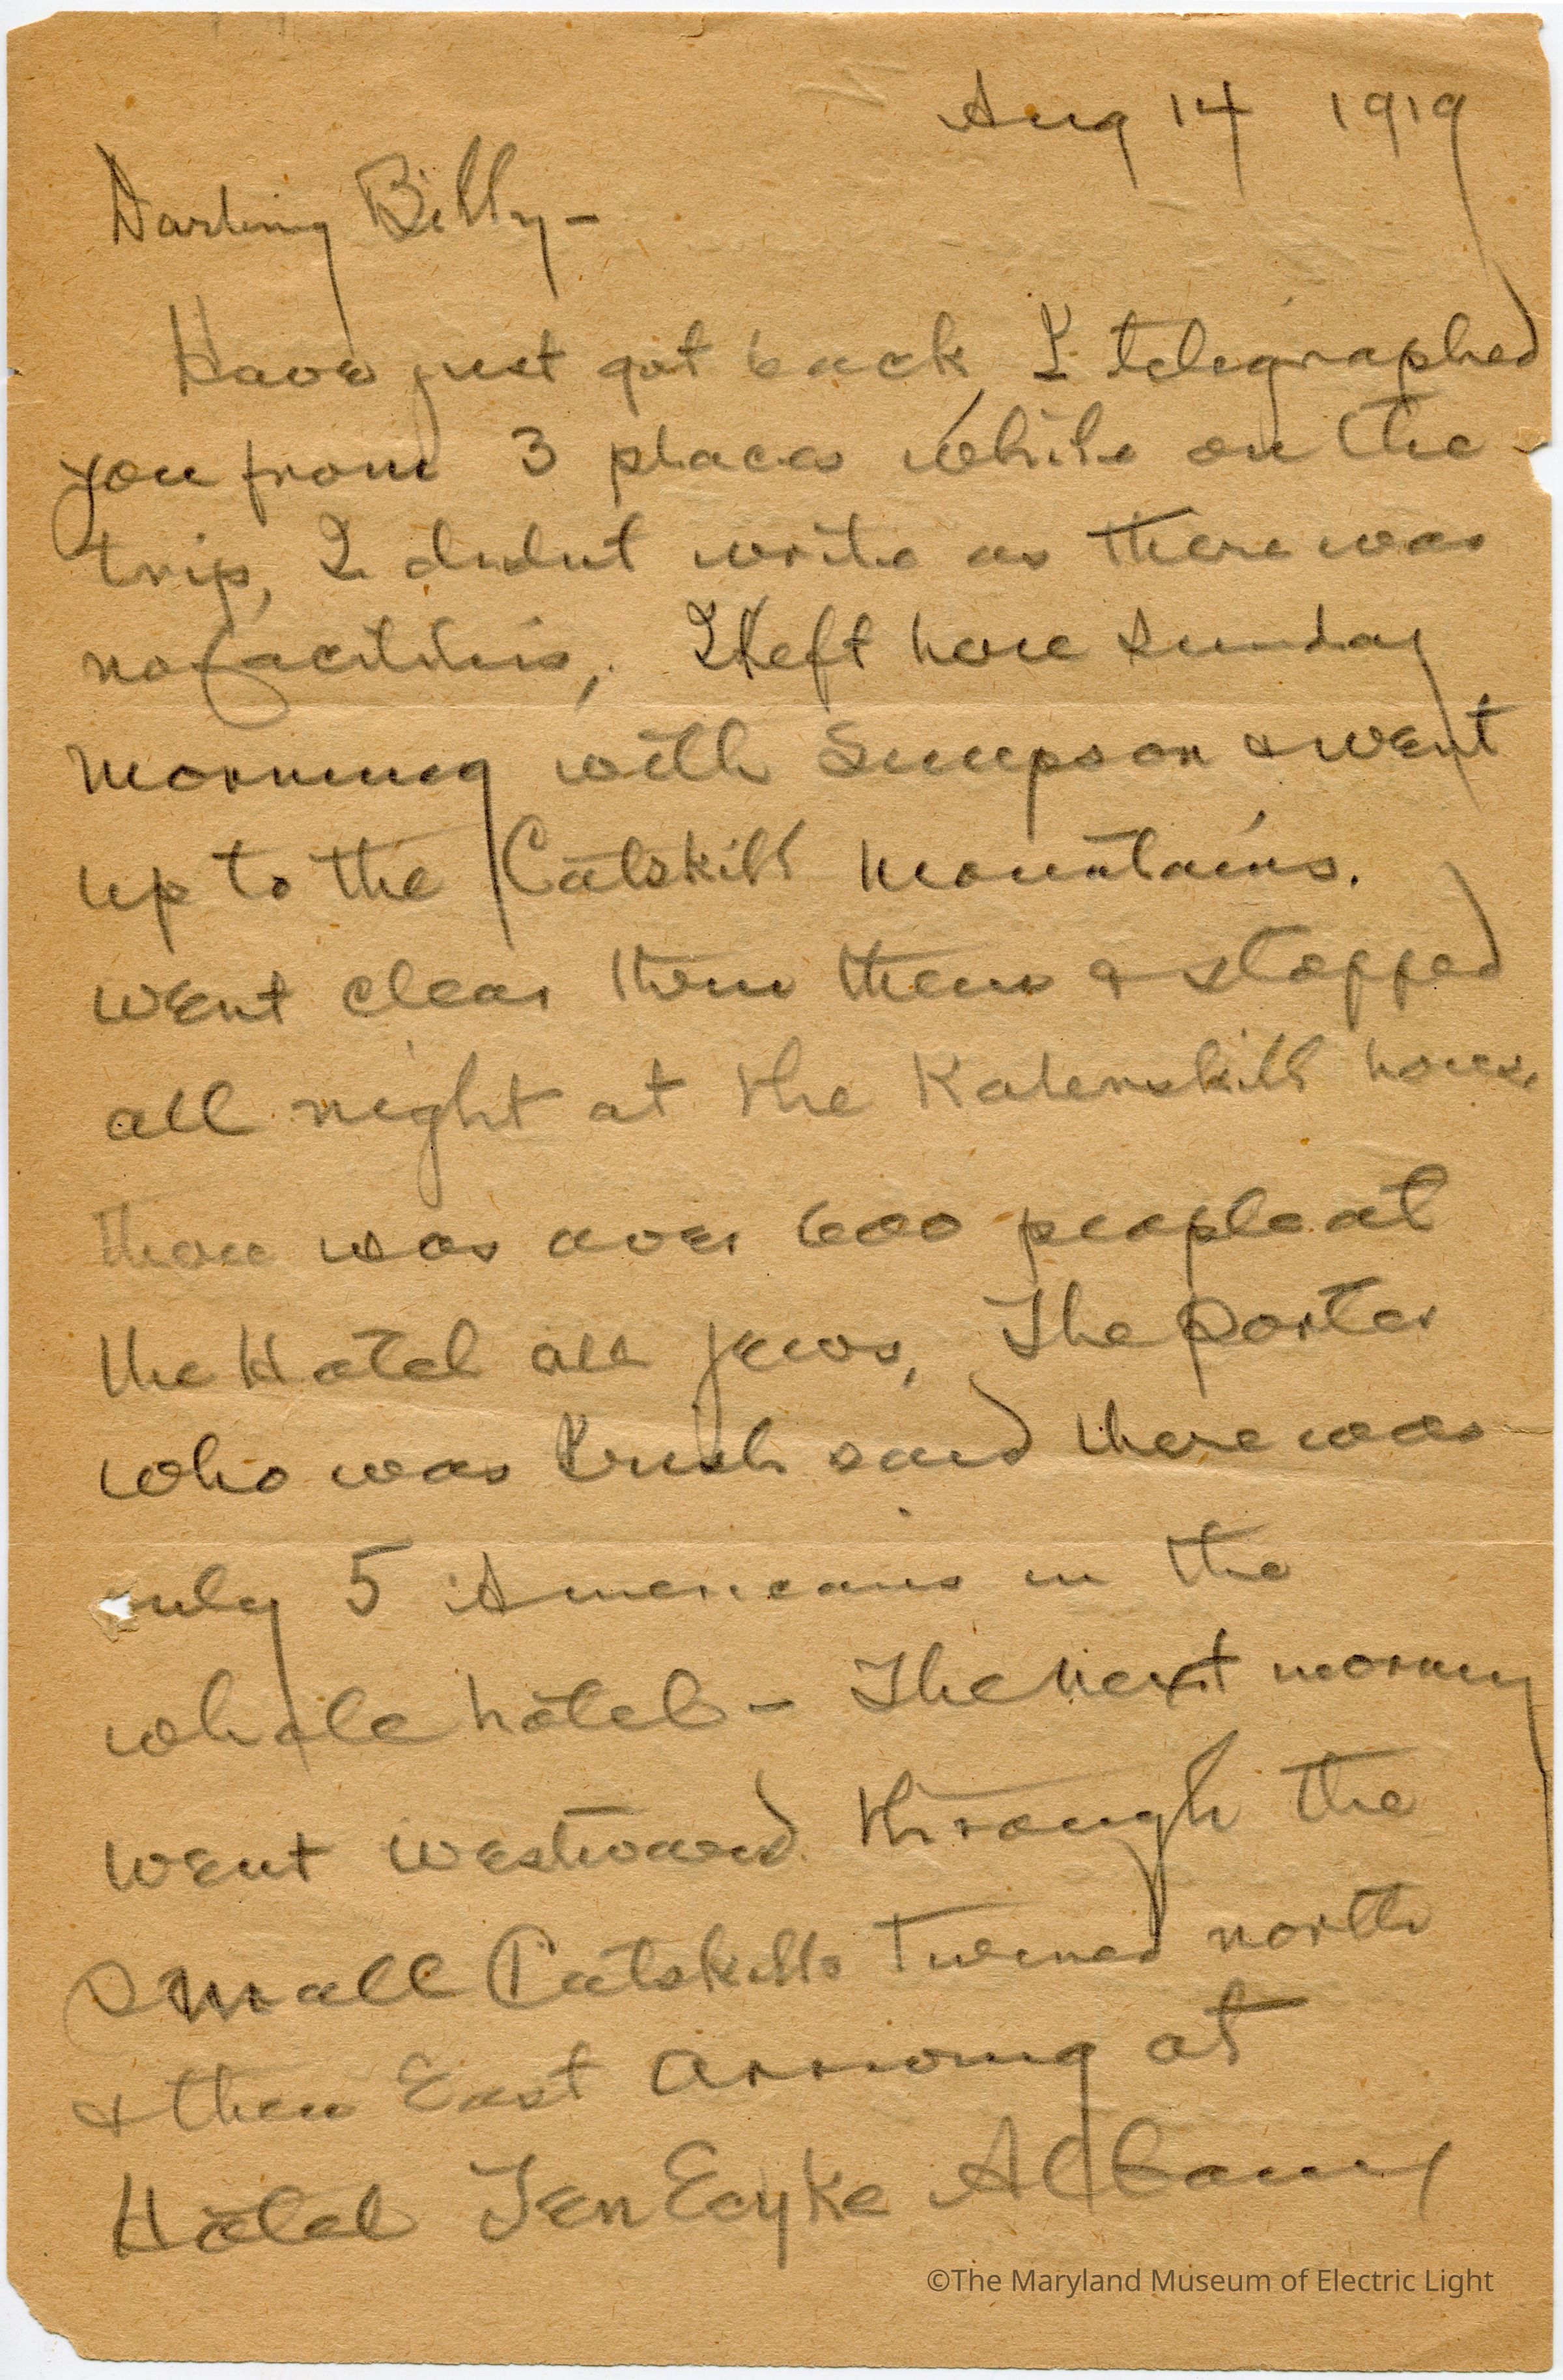 Aug 14 1919
Darling Billy –
Have just got back, I telegraphed
you from 3 places while on the
trip, I didnt write as there was
no facilities, I left here Sunday
morning with Simpson & went
up to the Catskill mountains.
went clear thru them & stopped
all night at the Katerskill house,
there was over 600 people at
the Hotel all Jews, The porter
who was Irish said there was
only 5 Americans in the
whole hotel – The next morning
went westward through the
Small Catskills turned north
& then East arriving at
Hotel Ten Eyke Albany
©The Maryland Museum of Electric Light